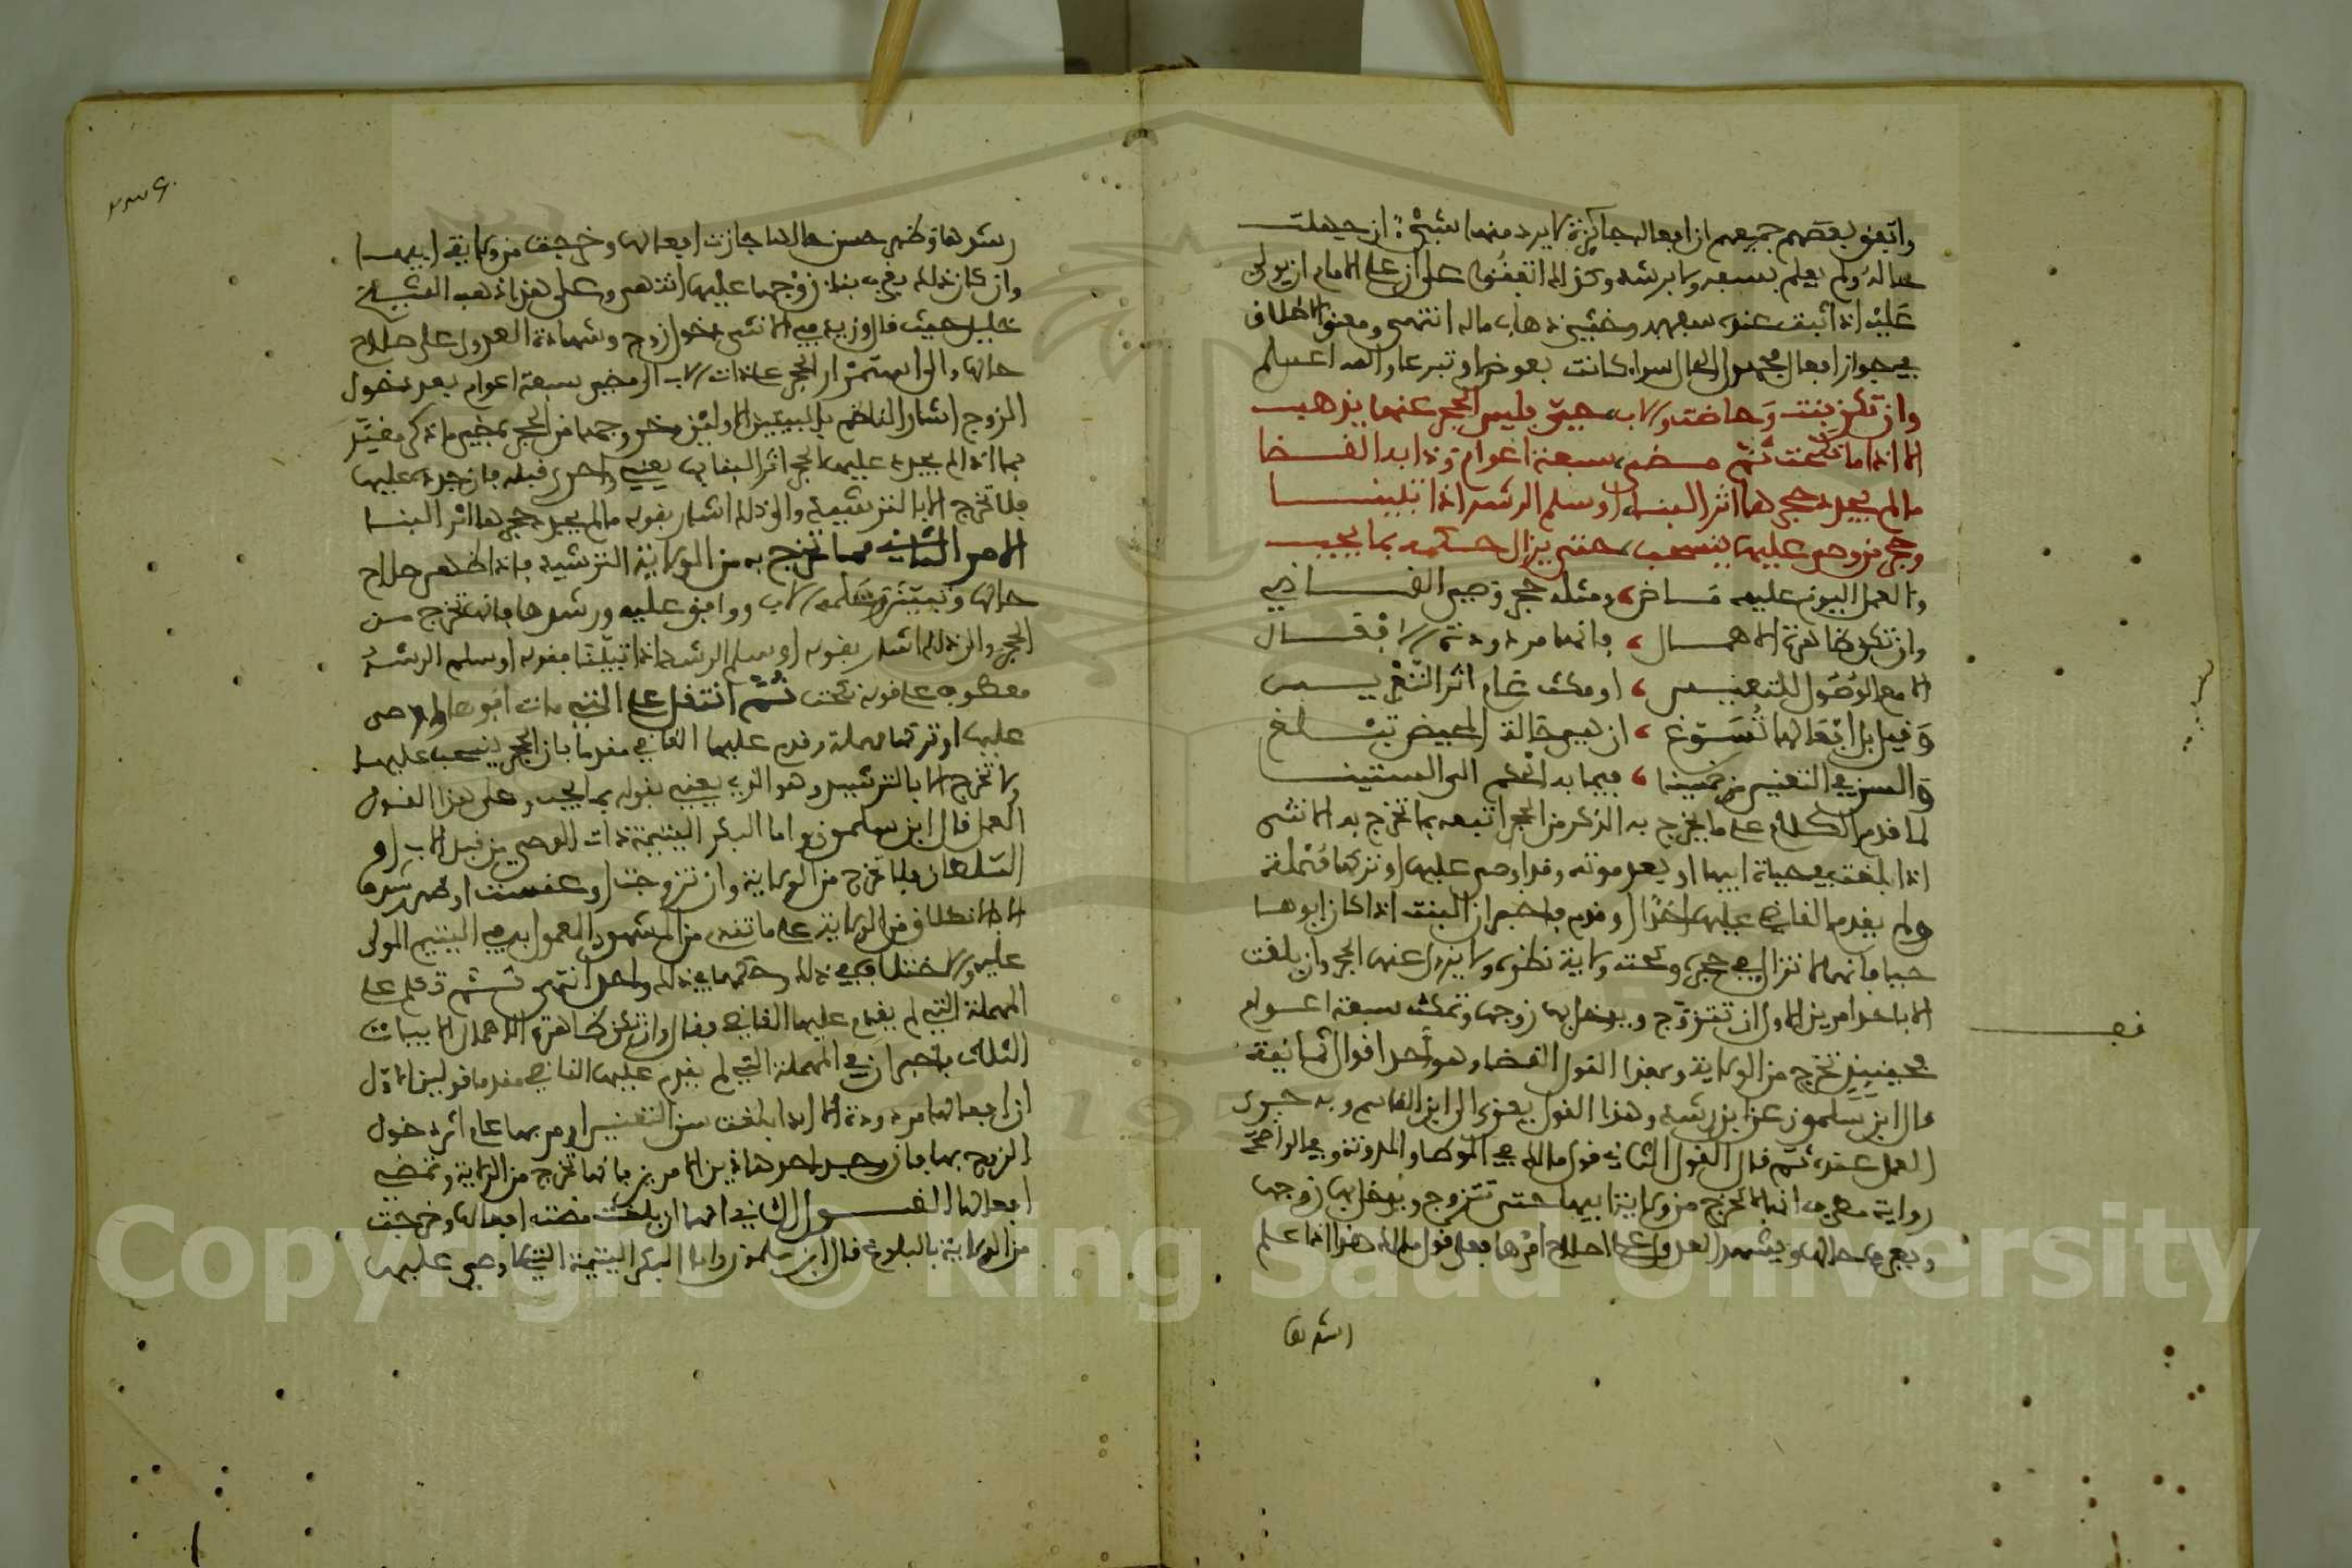 واتفق بعضهم جميعهم ان افعاله جائزة لا يرد منها شيء ان جهلت
حاله ولم يعلم بسفه ولا برشد وكذلك اتفقوا على ان على الامام ان يولي
عليه اذا ثبت عنده سفهه وخشي ذهاب ماله انتهى ومعنى الاطلاق
في جواز افعال مجهول الحال سواء كانت بعوض او تبرعا والله اعلم
وان تكن بنت وحاضت والاب حي فليس الحجر عنها يذهب
الا اذا ما نكحت ثم مضى سبعة اعوام وذا به القضا
ما لم يجدد حجرها اثر البنا او سلم الرشد اذا تبينا
وحجر من وصي عليها ينسحب حتى يزال حكمه بما يجب
والعمل اليوم عليه ماض ومثله حجر وصي القاضي
وان تكن ظاهرة الاهمال فانها مردودة الافعال
الا مع الوصول للتعنيس او مكث عام اثر التعريس
وقيل بل افعالها تسوغ ان هي حالة المحيض تبلغ
والسن في التعنيس من خمسينا فيما به الحكم الى الستينا
لما قدم الكلام على ما يخرج به الذكر من الحجر اتبعه بما تخرج به الانثى
اذا بلغت في حياة ابيها او بعد موته وقد اوصى عليها او تركها مهملة
ولم يقدم القاضي عليها احدا او قدم فاخبر ان البنت اذا كان ابوها
حيا فانها لا تزال في حجره وتحت ولاية نظره ولا يزول عنها الحجر وان بلغت
الا باحد امرين الاول ان تتزوج ويدخل بها زوجها وتمكث سبعة اعوام
فحينئذ تخرج من الولاية وبهذا القول القضاء وهو احد اقوال ثمانية
قال ابن سلمون عن ابن رشد وهذا القول يعزى الى ابن القاسم وبه جرى
العمل عنده ثم قال القول الثاني قول مالك في الموطا والمدونة وفي الواضحة
رواية مطرف انها لا تخرج من ولاية ابيها حتى تتزوج ويدخل بها زوجها
ويعرف حالها ويشهد العدول على اصلاح امرها فعلى قول مالك هذا اذا علم
رشدها وظهر حسن حالها جازت افعالها وخرجت من ولاية ابيها
وان كان ذلك بقرب بناء زوجها عليها انتهى وعلى هذا ذهب الشيخ
خليل حيث قال وزيد في الانثى دخول زوج وشهادة العدول على صلاح
حالها والى استمرار الحجر على ذات الاب الى مضي سبعة اعوام بعد دخول
الزوج اشار الناظم بالبيتين الاولين وخروجها من الحجر بمضي ما ذكر مقيد
بما اذا لم يجدد عليها الحجر اثر البناء بها يعني واحرى قبله فان جدده عليها
فلا تخرج الا بالترشيد والى ذلك اشار بقوله ما لم يجدد حجرها اثر البنا
الامر الثاني مما تخرج به من الولاية الترشيد فاذا ظهر صلاح
حالها وتبين وسلمه الاب ووافق عليه ورشدها فانها تخرج من
الحجر والى ذلك اشار بقوله او سلم الرشد اذا تبينا فقوله او سلم الرشد
معطوف على قوله نكحت ثم انتقل على التي مات ابوها واوصى
عليها او تركها مهملة وقدم عليها القاضي مقدما بان الحجر ينسحب عليها
ولا تخرج الا بالترشيد وهو الذي يعني بقوله بما يجب وعلى هذا القول
العمل قال ابن سلمون واما البكر اليتيمة ذات الوصي من قبل الاب او
السلطان فلا تخرج من الولاية وان تزوجت او عنست او ظهر رشدها
الا بالاطلاق من الولاية على ما تقدم من المشهور المعمول به في اليتيم المولى
عليه والاختلاف في ذلك وحكمها في ذلك واحد انتهى ثم تكلم على
المهملة التي لم يقدم عليها القاضي فقال وان تكن ظاهرة الاهمال الابيات
الثلاث فاخبر ان في المهملة التي لم يقدم عليها القاضي مقدما قولين الاول
ان افعالها مردودة الا اذا بلغت سن التعنيس او مر بها عام اثر دخول
الزوج بها فان وجد احد هاذين الامرين فانها تخرج من الولاية وتمضي
افعالها القول الثاني انها ان بلغت مضت افعالها وخرجت
من الولاية بالبلوغ قال ابن سلمون واما البكر اليتيمة التي لا وصي عليها
Copyright © King Saud University